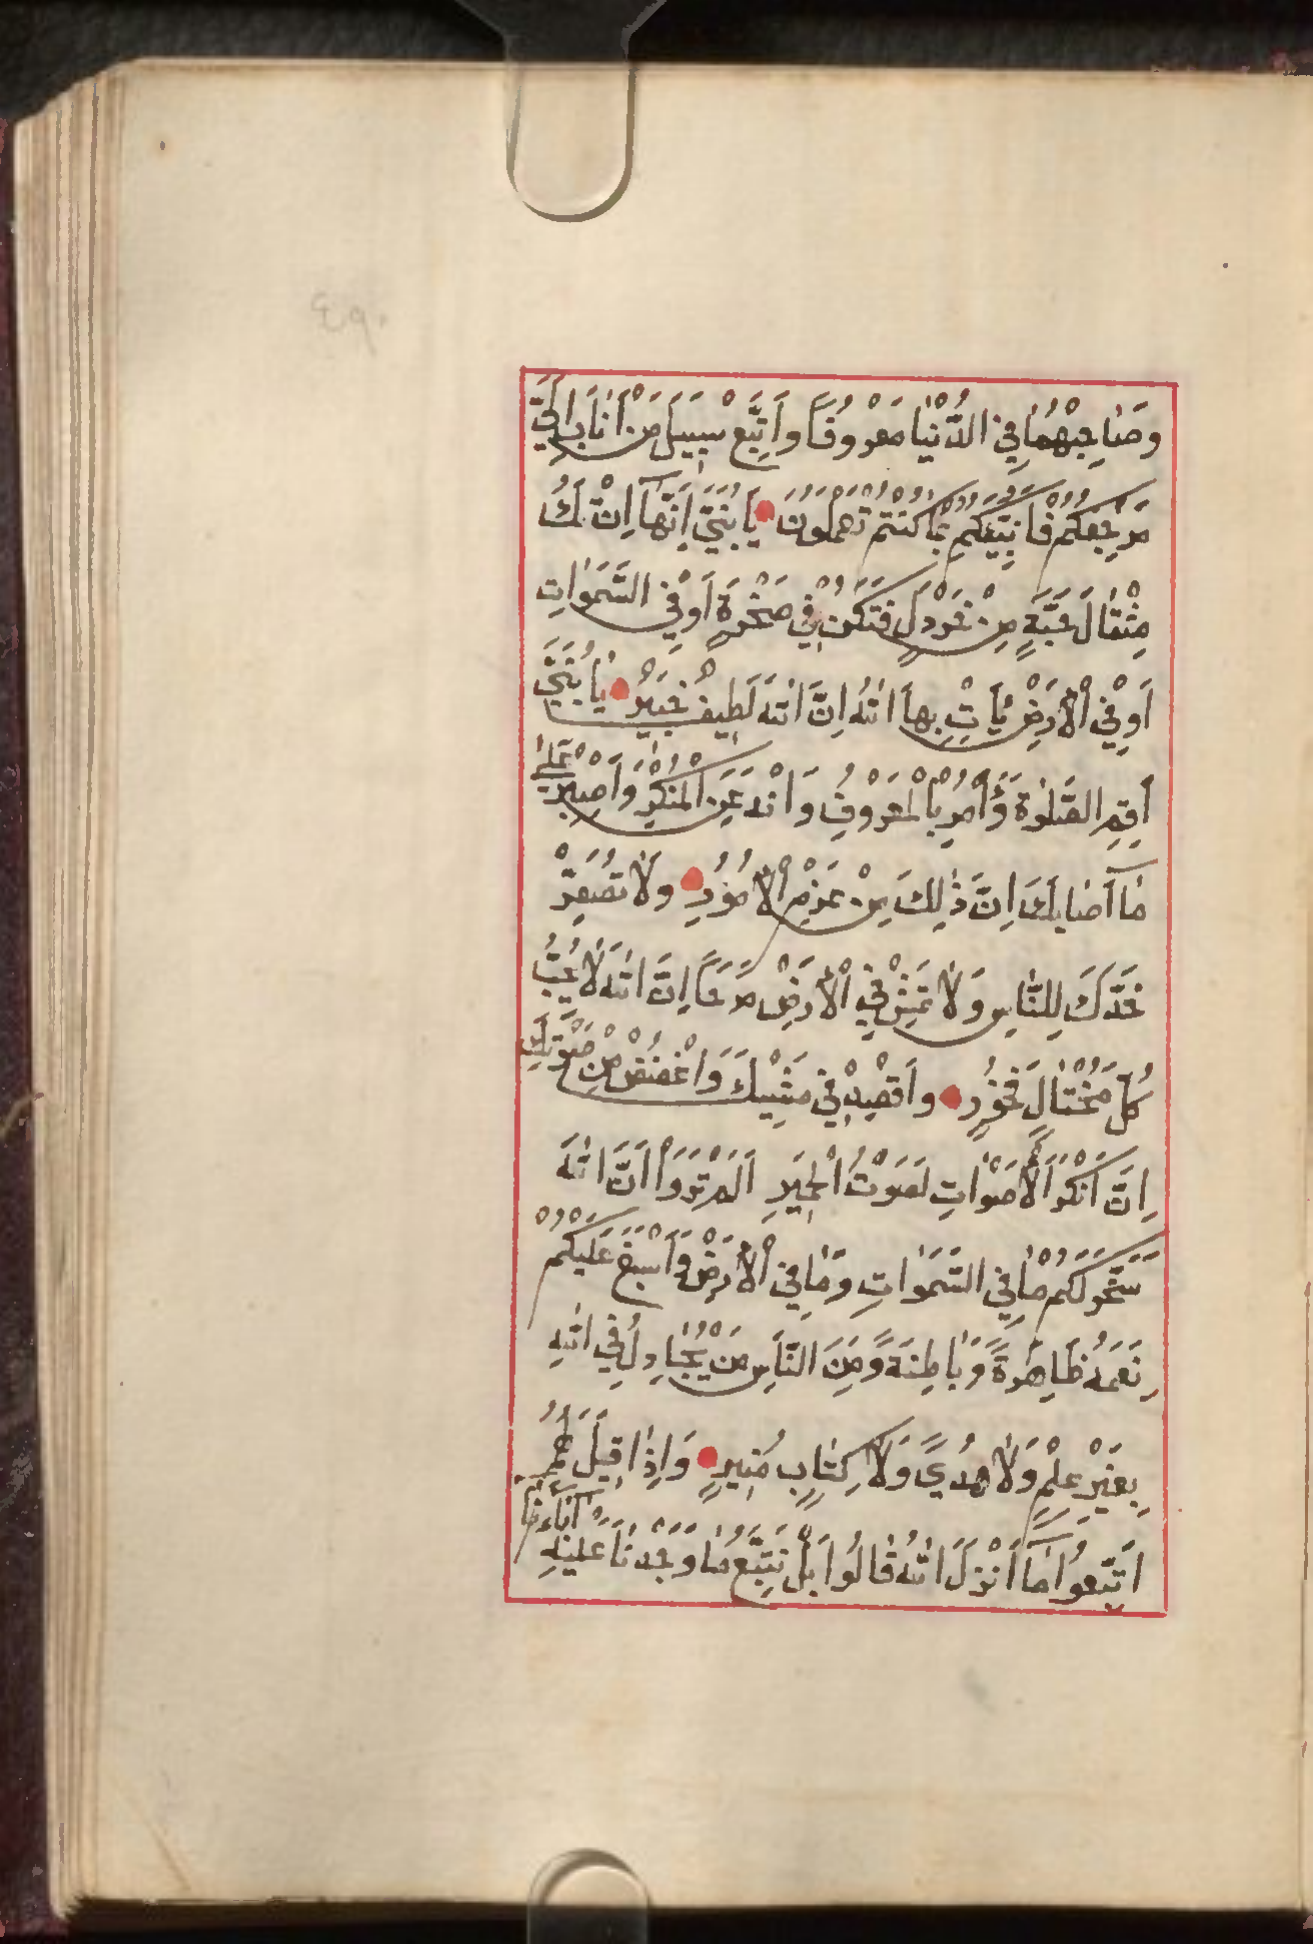 وصاحبهما في الدنيا معروفا واتبع سبيل من اناب الي
مرجعكم فانبئكم بما كنتم تعملون يا بني انها ان تك
مثقال حبة من خردل فتكن في صخرة او في السموات
او في الارض يأت بها الله ان الله لطيف خبير يا بني
اقم الصلوة وأمر بالمعروف وانه عن المنكر واصبر على
ما اصابك ان ذلك من عزم الامور ولا تصعر
خدك للناس ولا تمش في الارض مرحا ان الله لا يحب
كل مختال فخور واقصد في مشيك واغضض من صوتك
ان انكر الاصوات لصوت الحمير الم تروا ان الله
سخر لكم ما في السموات وما في الارض واسبغ عليكم
نعمه ظاهرة وباطنة ومن الناس من يجادل في الله
بغير علم ولا هدى ولا كتاب منير واذا قيل لهم
اتبعوا ما انزل الله قالوا بل نتبع ما وجدنا عليه آباءنا